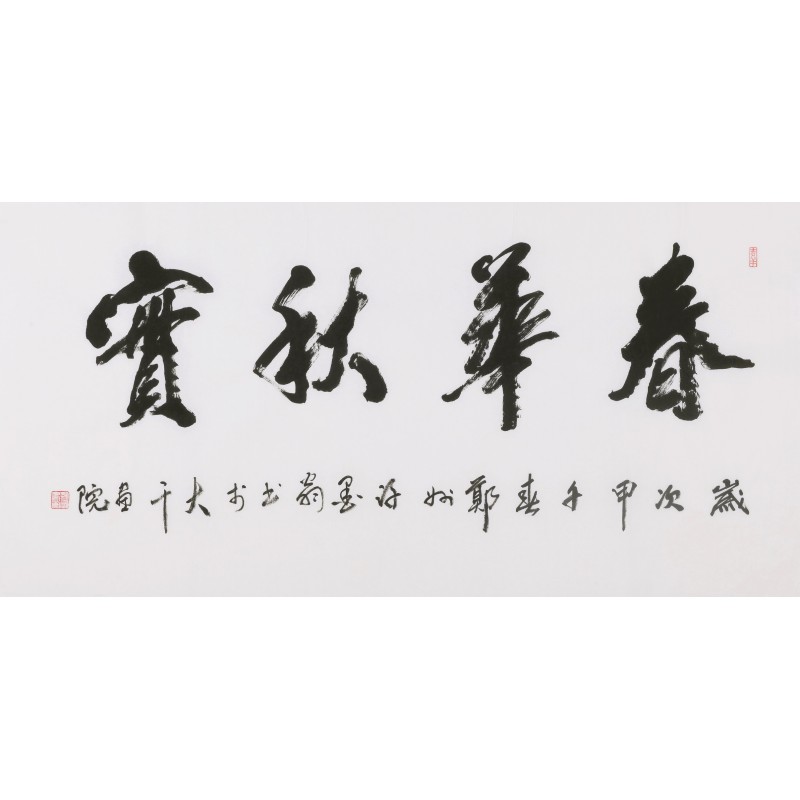 春華秋實
歲次甲午春鄭州許墨翁書於大千畫院